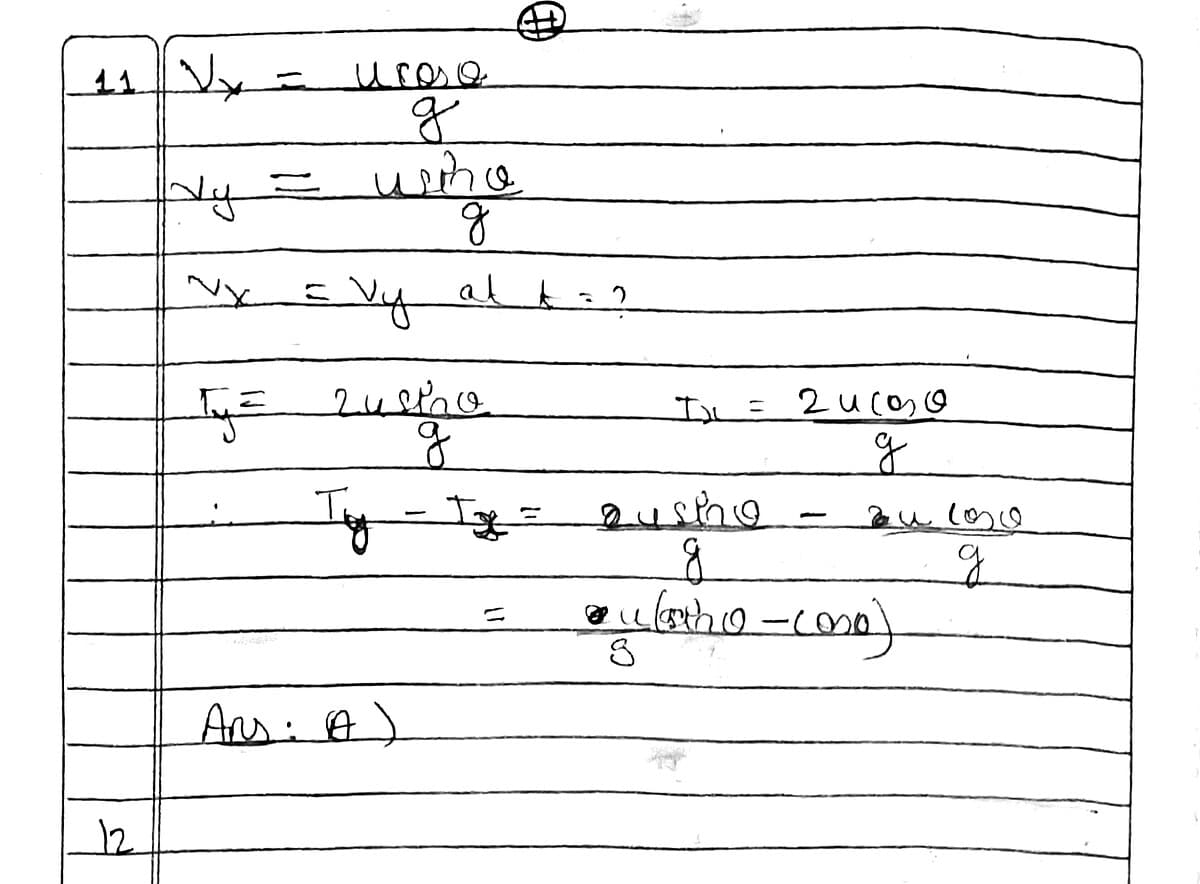 #
11 Vx = u cosθ
g
Vy = u sinθ
g
Vx = Vy at t = ?
Ty = 2u sinθ Tx = 2u cosθ
g g
∴ Ty - Tx = 2u sinθ - 2u cosθ
g g
= u (sinθ - cosθ)
g
Ans : A )
12